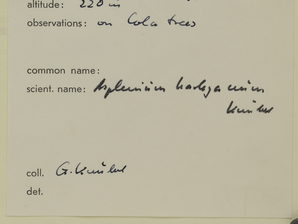 altitude: 220 m
observations: on Cola trees
common name:
scient. name: Asplenium
coll. G. Kunkel
det.